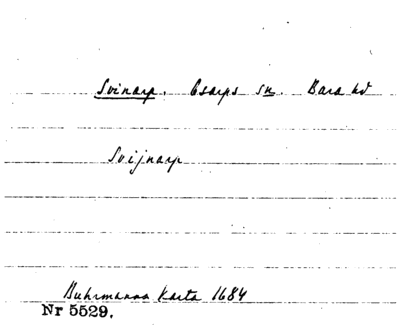 Svinarp. Esarps sn. Bara hd
Svijnarp
Buhrmanns Karta 1684
Nr 5529.